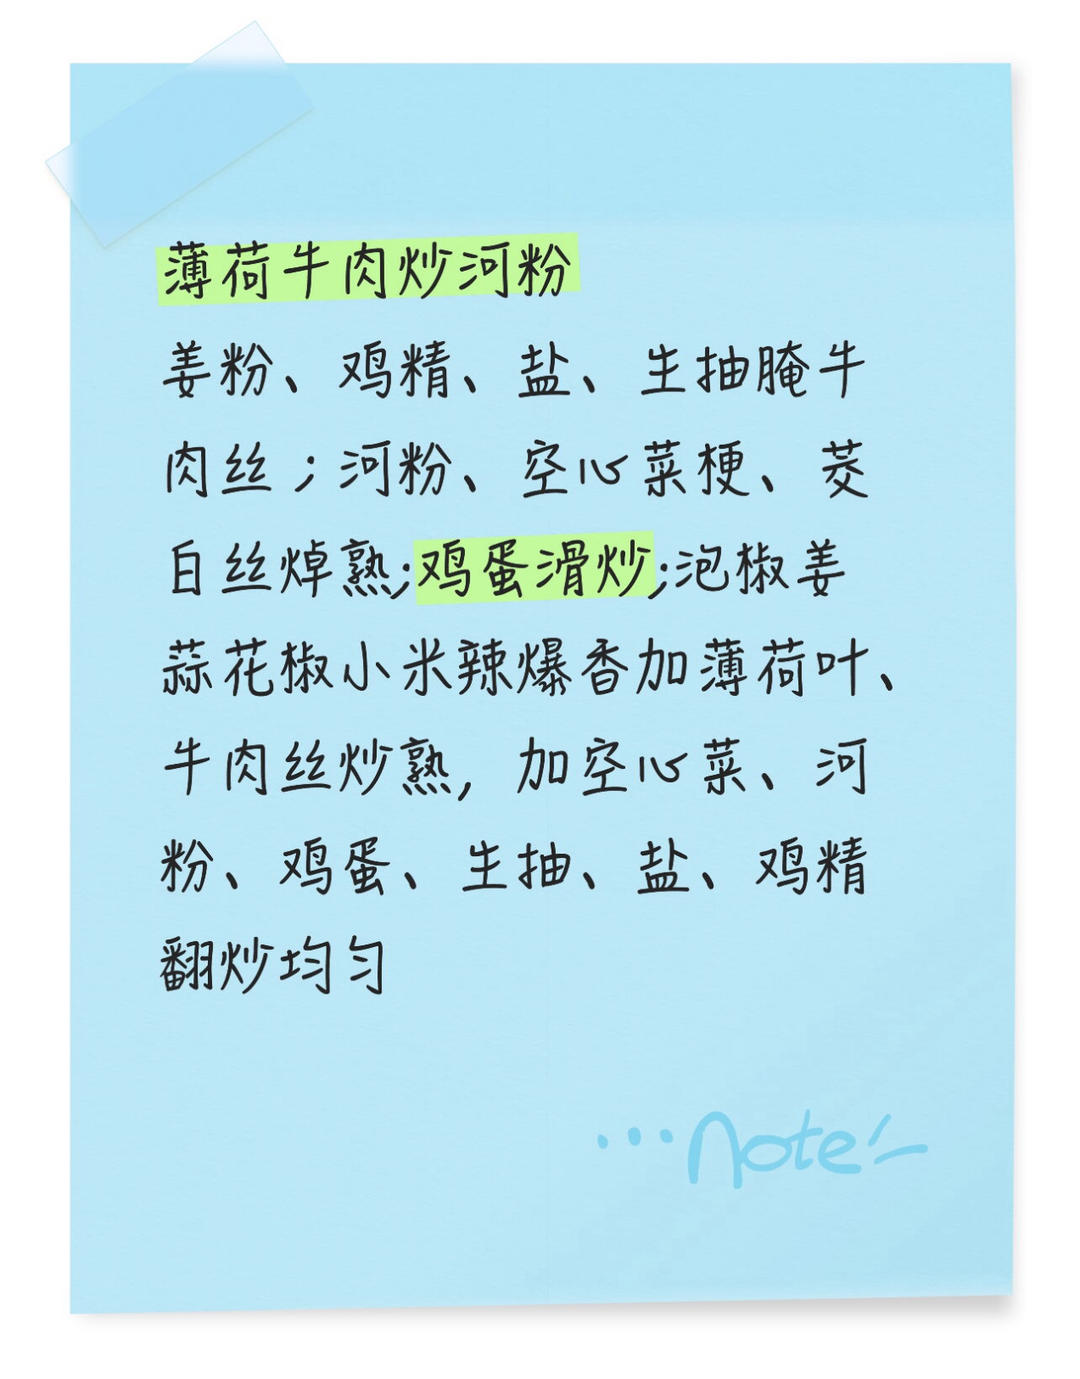 薄荷牛肉炒河粉
姜粉、鸡精、盐、生抽腌牛
肉丝；河粉、空心菜梗、茭
白丝焯熟;鸡蛋滑炒;泡椒姜
蒜花椒小米辣爆香加薄荷叶、
牛肉丝炒熟，加空心菜、河
粉、鸡蛋、生抽、盐、鸡精
翻炒均匀
...note